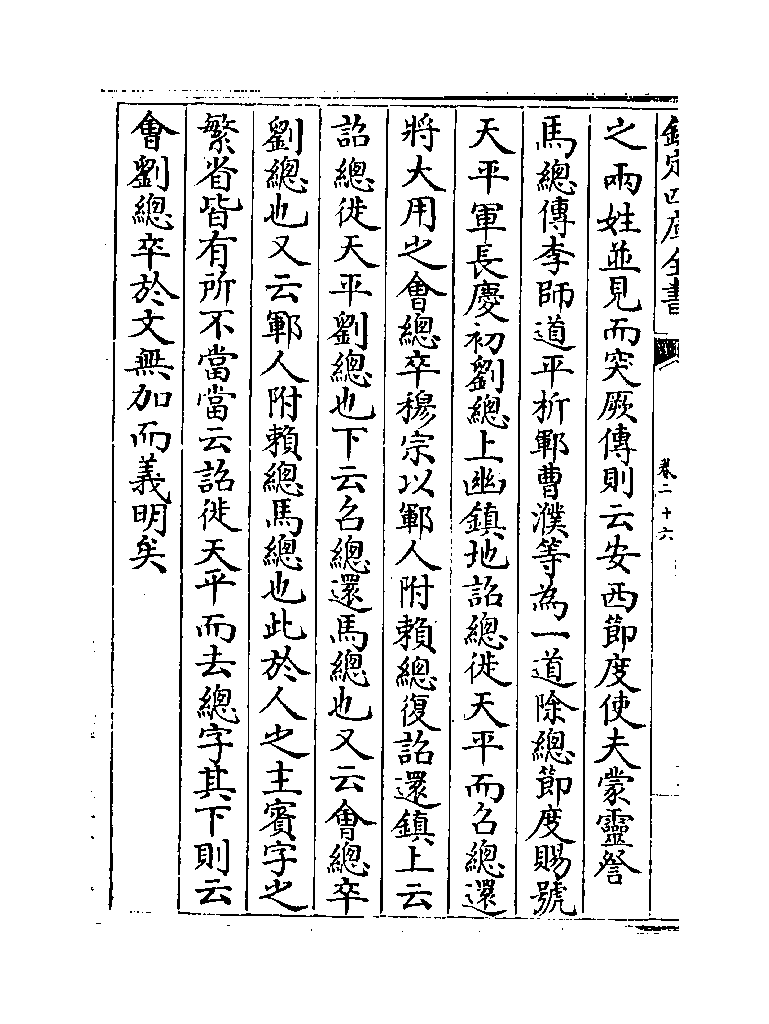 欽定四庫全書
卷二十六
之兩姓並見而突厥傳則云安西節度使夫蒙靈詧
馬總傳李師道平析鄆曹濮等為一道除總節度賜號
天平軍長慶初劉總上幽鎮地詔總徙天平而召總還
將大用之會總卒穆宗以鄆人附賴總復詔還鎮上云
詔總徙天平劉總也下云召總還馬總也又云會總卒
劉總也又云鄆人附賴總馬總也此於人之主賓字之
繁省皆有所不當當云詔徙天平而去總字其下則云
會劉總卒於文無加而義明矣